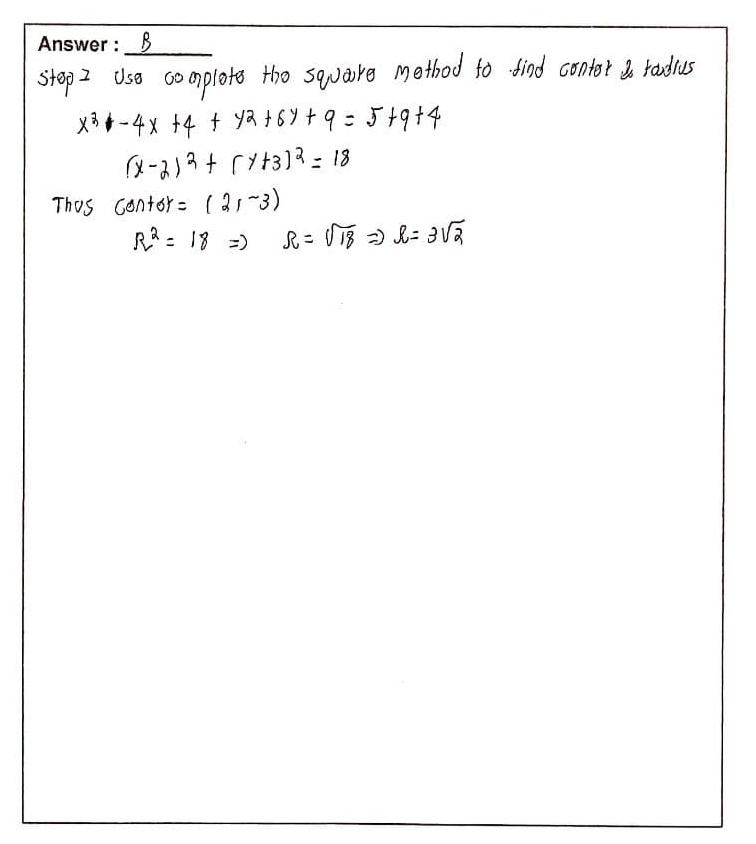 Answer : B
Step 1 Use complete the square method to find center & radius
x² - 4x + 4 + y2 + 6y + 9 = 5+9+4
(x-2)² + (y+3)² = 18
Thus center = (2, -3)
R² = 18 => R = √18 => R = 3√2